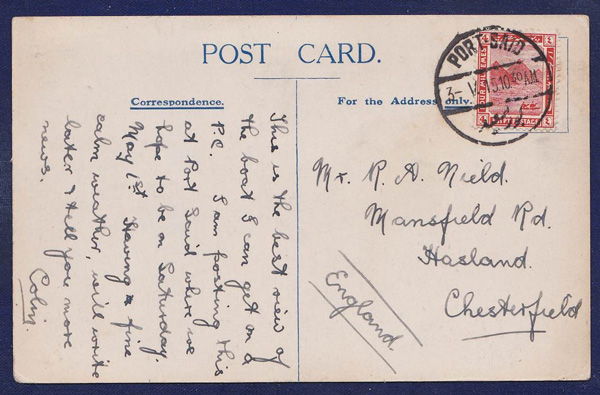 POST CARD.
Correspondence.
For the Address only.
PORT SAID
10.30 AM
This is the best view of
the boat I can get on a
P.C. I am posting this
at Port Said where we
hope to be on Saturday.
May 1st. Having a fine
calm weather, will write
later & tell you more
news.
Colin.
Mr. R. A. Nield.
Mansfield Rd.
Hasland.
Chesterfield
England.